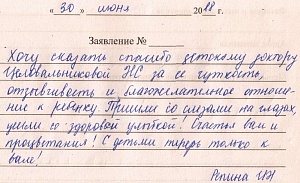 « 30 » июня 2018 г.
Заявление №
Хочу сказать спасибо детскому доктору
Целовальниковой НС за ее чуткость,
отзывчивость и благожелательное отноше-
ние к ребенку Пришли со слезами на глазах,
ушли со здоровой улыбкой! Счастья вам и
процветания! С детьми теперь только к
вам!
Репина ИН